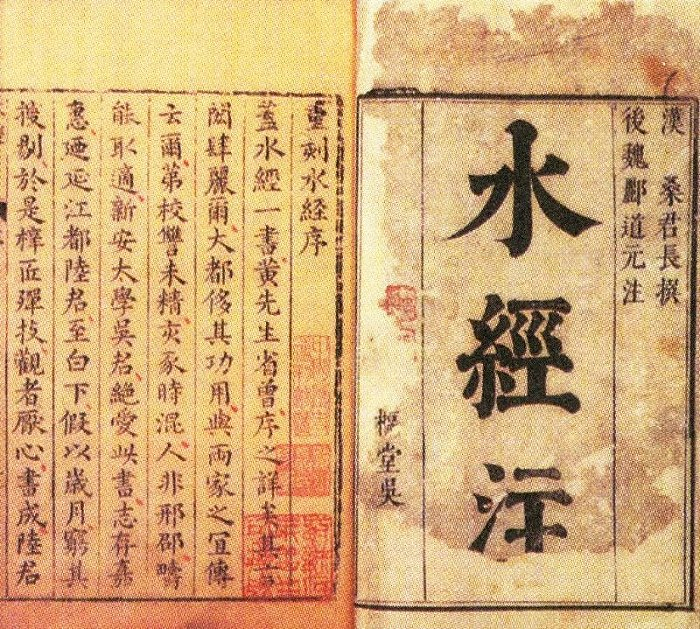 漢 桑君長撰
後魏酈道元注
水經注
堂吳
重刻水經序
蓋水經一書黄先生省曾序之詳矣其言
閎肆麗爾大都侈其功用與兩家之冝傳
云爾第校讐未精亥豕時混人非邢邵疇
能取適新安太學吳君絶愛此書志存嘉
惠廼延江都陸君至白下假以歲月窮其
搜剔於是梓匠殫技觀者厭心書成陸君